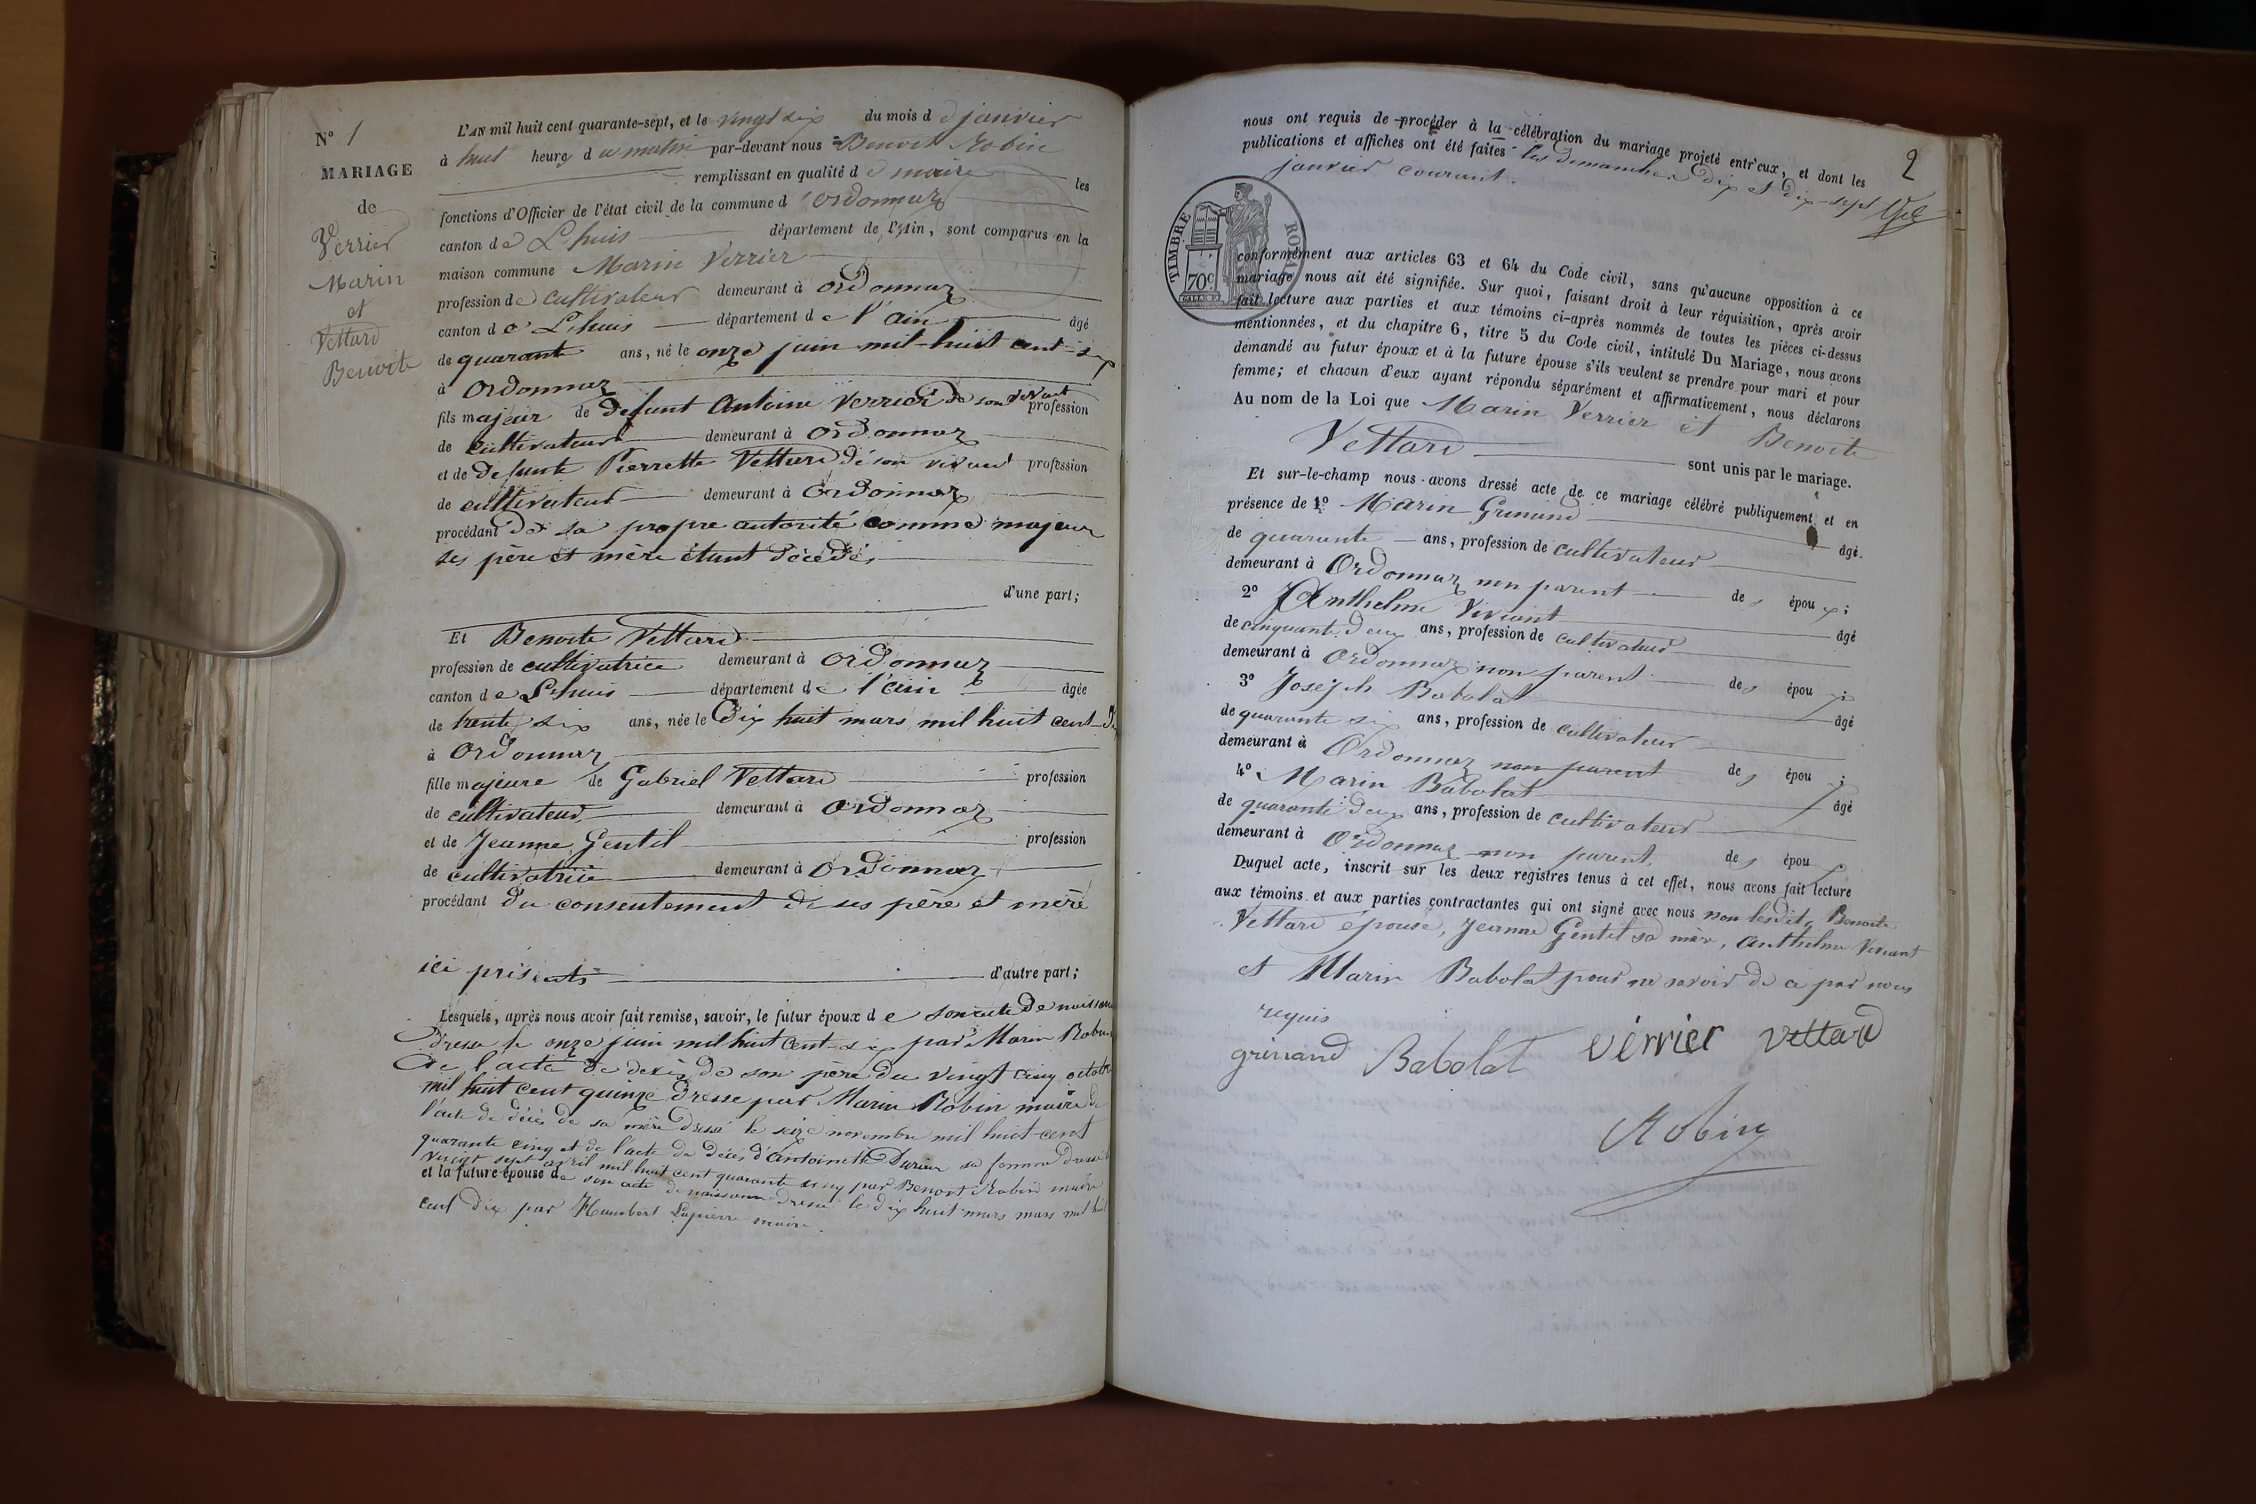 N° 1
MARIAGE
de
Verrier
Marin
et
Vettard
Benoite
L'AN mil huit cent quarante-sept, et le vingt six du mois d e janvier
à huit heures d u matin par-devant nous Benoit Robin
remplissant en qualité d e maire les
fonctions d'Officier de l'état civil de la commune d 'ordonnaz
canton d e Lhuis département de l'Ain, sont comparus en la
maison commune Marin Verrier
profession d e cultivateur demeurant à ordonnaz
canton d e Lhuis département d e l'ain âgé
de quarante ans, né le onze juin mil huit cent six
à Ordonnaz
fils majeur de défunt Antoine Verrier de son vivant profession
de cultivateur demeurant à ordonnaz
et de defunte Pierrette Vettard de son vivant profession
de cultivateur demeurant à ordonnaz
procédant de sa propre autorité comme majeur
ses père et mère étant décédés
d'une part;
Et Benoite Vettard
profession de cultivatrice demeurant à ordonnaz
canton d e Lhuis département d e l'ain âgée
de trente six ans, née le dix huit mars mil huit cent
à Ordonnaz
fille majeure de Gabriel Vettard profession
de cultivateur demeurant à ordonnaz
et de Jeanne Gentil profession
de cultivatrice demeurant à ordonnaz
procédant du consentement de ses père et mère
ici présents d'autre part;
Lesquels, après nous avoir fait remise, savoir, le futur époux d e son acte de naissance
dressé le onze juin mil huit cent six par Marin Robin
de l'acte de décès de son père du vingt cinq octobre
mil huit cent quinze dressé par Marin Robin maire de
l'acte de décès de sa mère dressé le seize novembre mil huit cent
quarante cinq et de l'acte de décès d'antoinette sa femme dressé le
vingt sept avril mil huit cent quarante cinq par Benoit Robin maire
et la future épouse d e son acte de naissance dressé le dix huit mars mars mil huit
cent dix par Humbert Lapierre maire.
2
nous ont requis de procéder à la célébration du mariage projeté entr'eux, et dont les
publications et affiches ont été faites les dimanches dix et dix-sept
janvier courant.
TIMBRE ROYAL
70c
conformément aux articles 63 et 64 du Code civil, sans qu'aucune opposition à ce
mariage nous ait été signifiée. Sur quoi, faisant droit à leur réquisition, après avoir
fait lecture aux parties et aux témoins ci-après nommés de toutes les pièces ci-dessus
mentionnées, et du chapitre 6, titre 5 du Code civil, intitulé Du Mariage, nous avons
demandé au futur époux et à la future épouse s'ils veulent se prendre pour mari et pour
femme; et chacun d'eux ayant répondu séparément et affirmativement, nous déclarons
Au nom de la Loi que Marin Verrier et Benoite
Vettard sont unis par le mariage.
Et sur-le-champ nous avons dressé acte de ce mariage célébré publiquement et en
présence de 1° Marin Grinand âgé
de quarante ans, profession de cultivateur
demeurant à Ordonnaz non parent de s épou x;
2° Anthelme Vivant âgé
de cinquante deux ans, profession de cultivateur
demeurant à Ordonnaz non parent de s épou x;
3° Joseph Babolat âgé
de quarante six ans, profession de cultivateur
demeurant à Ordonnaz non parent de s épou x;
4° Marin Babolat âgé
de quarante deux ans, profession de cultivateur
demeurant à Ordonnaz non parent de s épou x
Duquel acte, inscrit sur les deux registres tenus à cet effet, nous avons fait lecture
aux témoins et aux parties contractantes qui ont signé avec nous non lesdits Benoite
Vettard épouse, Jeanne Gentil sa mère, Anthelme Vivant
et Marin Babolat pour ne savoir de ce par nous
requis
grinand Babolat vérrier vettard
Robin